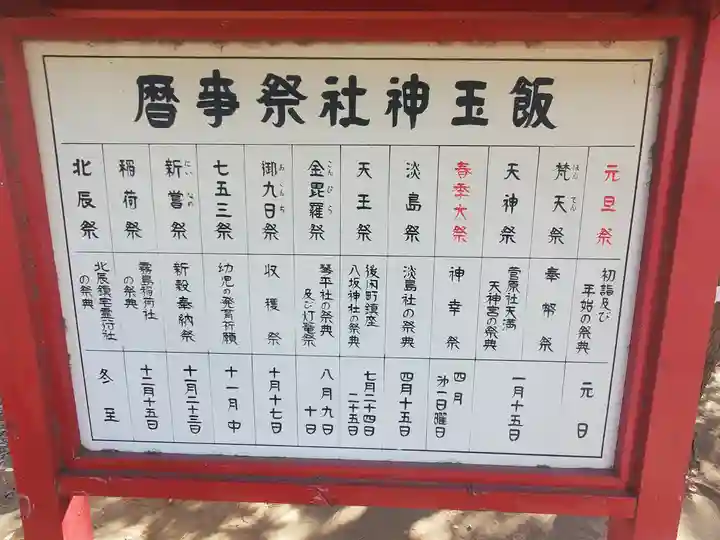 飯玉神社祭事暦
元旦祭
初詣及び
年始の祭典
元日
梵天祭
ぼんでん
奉幣祭
天神祭
菅原社天満
天神宮の祭典
一月十五日
春季大祭
神幸祭
四月
第一日曜日
淡島祭
淡島社の祭典
四月十五日
天王祭
後閑町鎮座
八坂神社の祭典
七月二十四日
二十五日
金毘羅祭
こんぴら
琴平社の祭典
及び灯篭祭
八月九日
十日
御九日祭
おくんち
収穫祭
十月十七日
七五三祭
幼児の発育祈願
十一月中
新嘗祭
にいなめ
新穀奉納祭
十一月二十三日
稲荷祭
霧島稲荷社
の祭典
十二月十五日
北辰祭
北辰鎮宅霊符社
の祭典
冬至